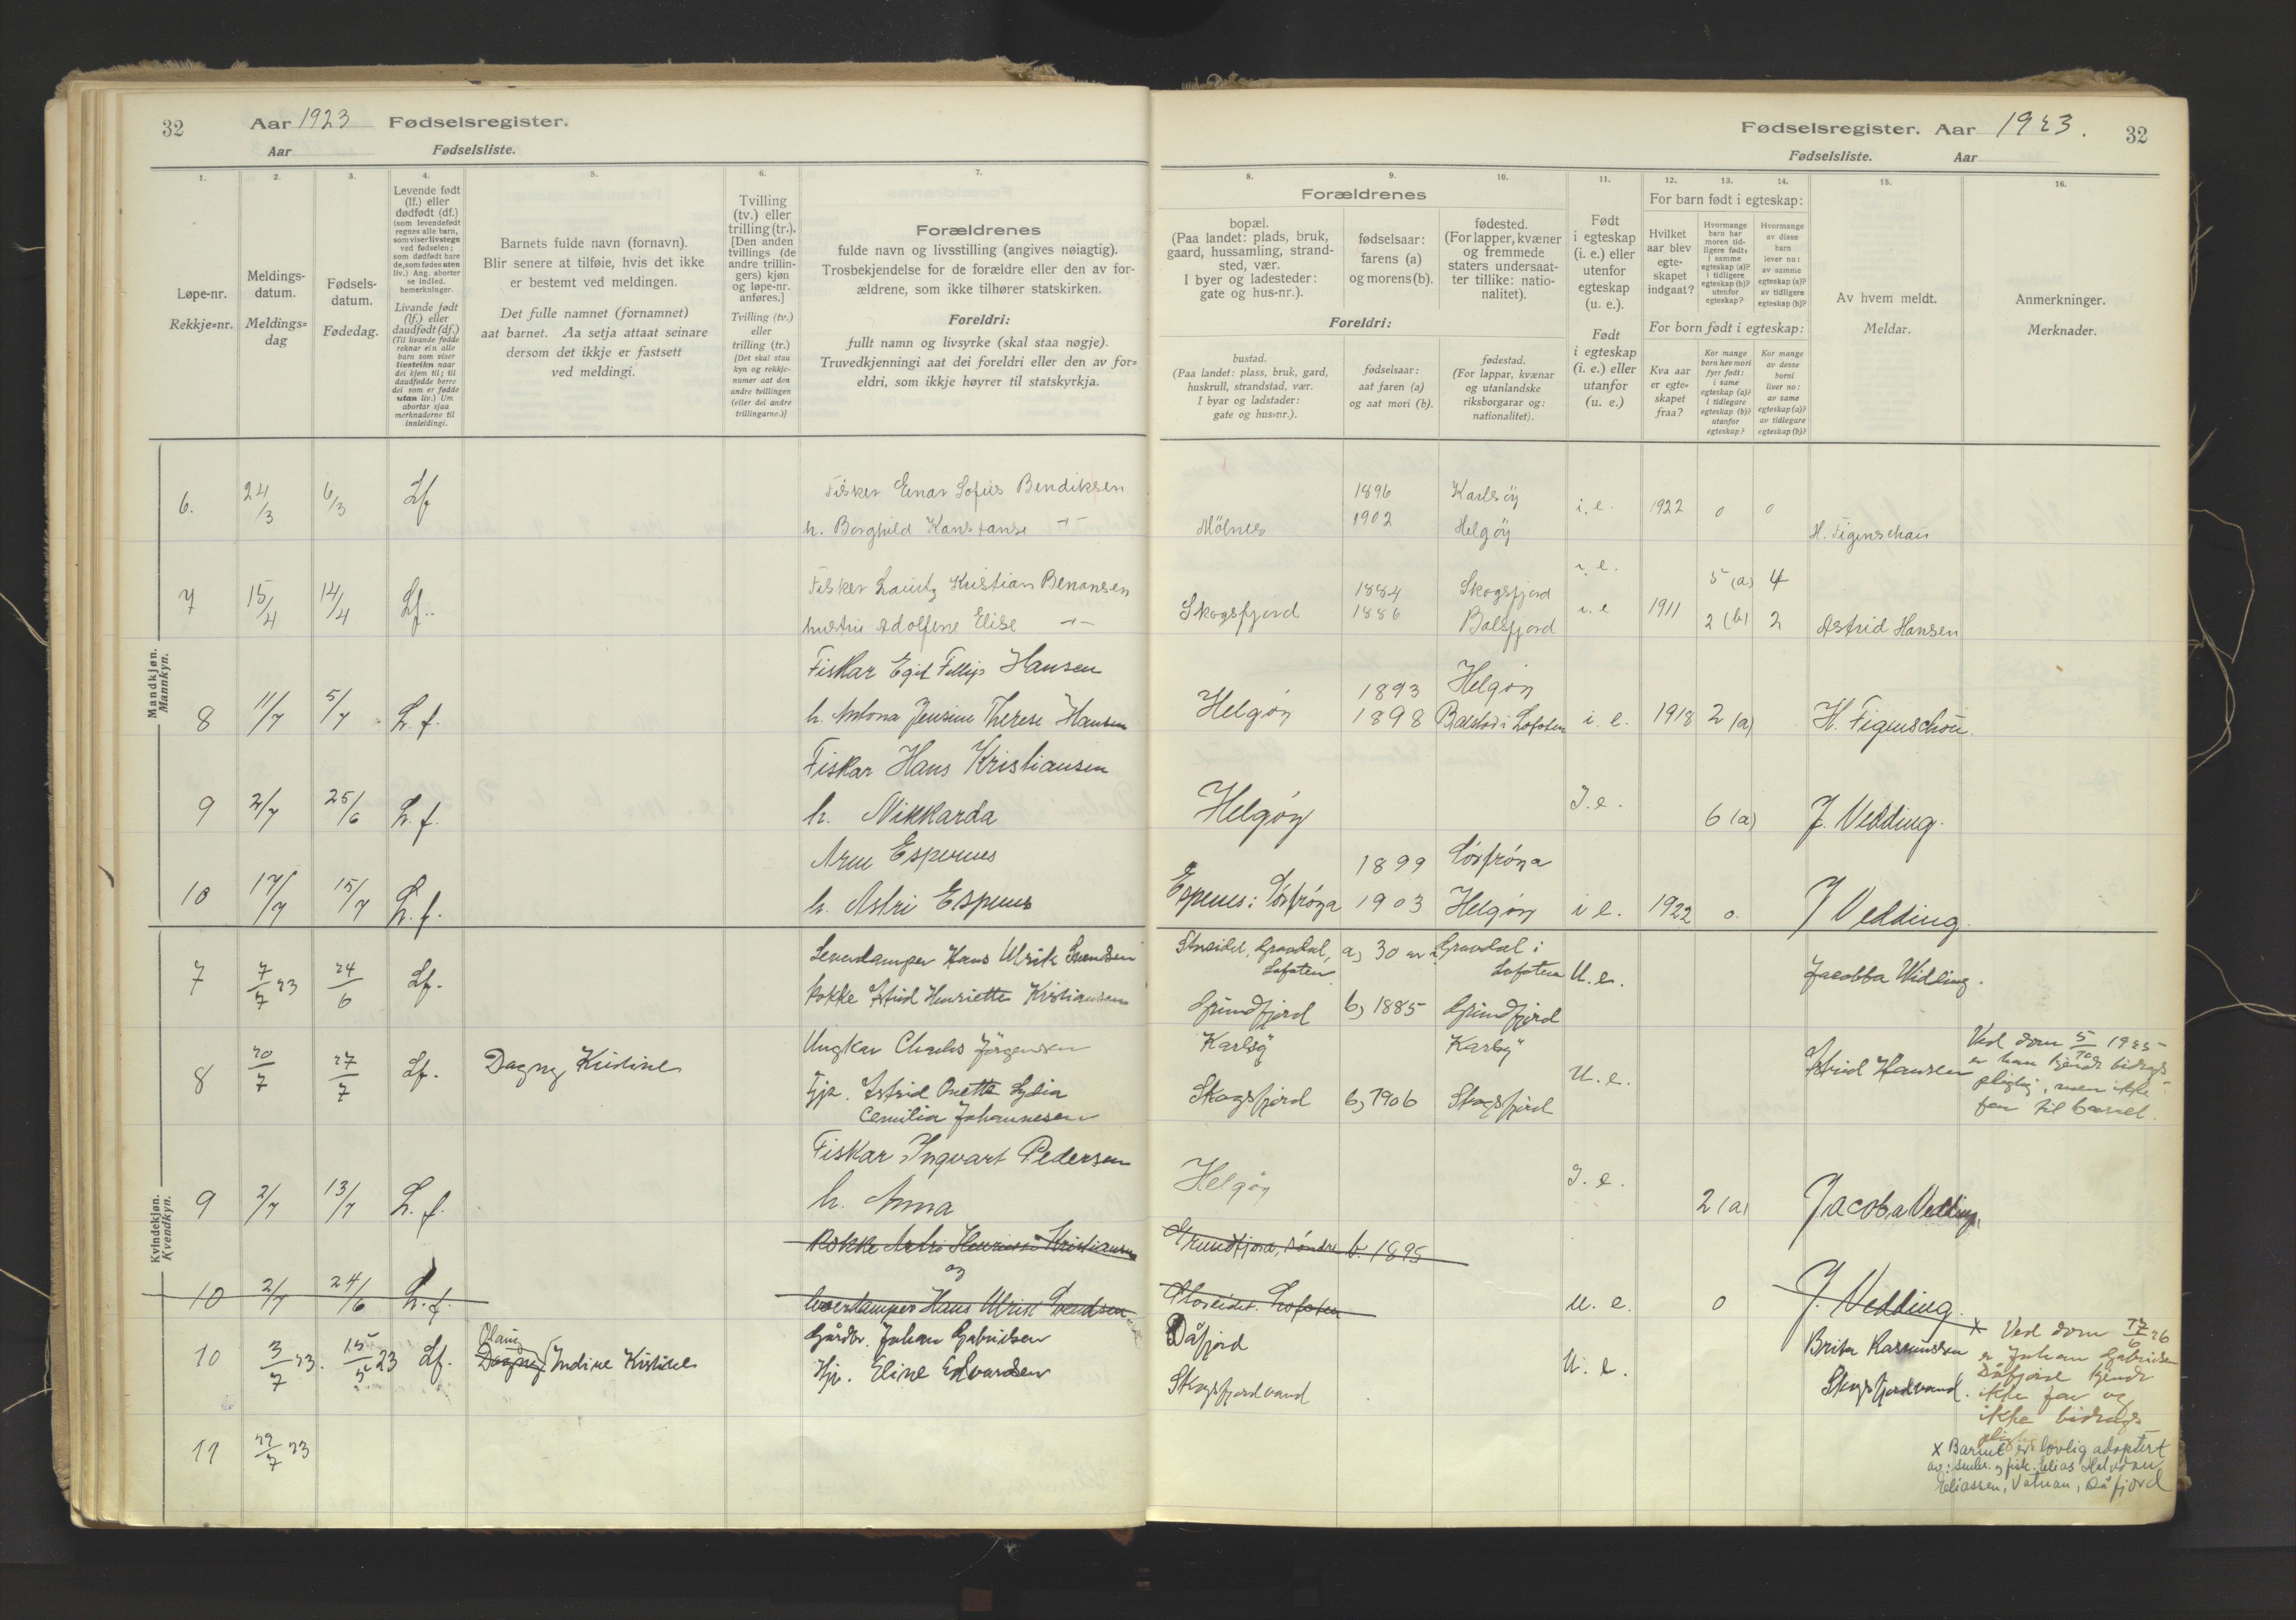 32 Aar 1923 Fødselsregister.
Aar Fødselsliste.
1. 2. 3. 4. 5. 6. 7.
Løpe-nr.
Rekkje=nr.
Meldings-
datum.
Meldings=
dag
Fødsels-
datum.
Fødedag.
Levende født
(lf.) eller
dødfødt (df.)
(som levendefødt
regnes alle barn,
som viser livstegn
ved fødselen;
som dødfødt bare
de, som fødes uten
liv.) Ang. aborter
se indled.
bemerkninger.
Livande født
(lf.) eller
daudfødt (df.)
(Til livande fødde
reknar ein alle
barn som viser
livsteikn naar
dei kjem til; til
daudfødde berre
dei som er fødde
utan liv.) Um
abortar sjaa
merknaderne til
innleidingi.
Barnets fulde navn (fornavn).
Blir senere at tilføie, hvis det ikke
er bestemt ved meldingen.
Det fulle namnet (fornamnet)
aat barnet. Aa setja attaat seinare
dersom det ikkje er fastsett
ved meldingi.
Tvilling
(tv.) eller
trilling (tr.).
[Den anden
tvillings (de
andre trillin-
gers) kjøn
og løpe-nr.
anføres.]
Tvilling (tv.)
eller
trilling (tr.)
[Det skal staa
kyn og rekkje-
numer aat den
andre tvillingen
(eller dei andre
trillingarne.)]
Forældrenes
fulde navn og livsstilling (angives nøiagtig).
Trosbekjendelse for de forældre eller den av for-
ældrene, som ikke tilhører statskirken.
Foreldri:
fullt namn og livsyrke (skal staa nøgje).
Truvedkjenningi aat dei foreldri eller den av for=
eldri, som ikkje høyrer til statskyrkja.
Mandkjøn.
Mannkyn.
6. 24/3 6/3 Lf Fisker Einar Sofus Bendiksen
h. Borghild Konstanse -"-
7 15/4 14/4 Lf. Fisker Lauritz Kristian Benonsen
hustru Adolfine Elise -"-
Fiskar Egil Fillip Hansen
8 11/7 5/7 L.f. h. Antona Jensine Therese Hansen
Fiskar Hans Kristiansen
9 2/7 25/6 L.f. h. Nikkarda
Arne Espenes
10 17/7 15/7 L.f. h. Astri Espenes
Kvindekjøn.
Kvendkyn.
7 7/7 23 24/6 Lf. Leverdamper Hans Ulrik Svendsen
Kokke Astrid Henriette Kristiansen
8 20/7 27/7 Lf. Dagny Kristine Ungkar Charles Jörgensen
Tjp. Astrid Anette Lydia
Cemilia Johannesen
Fiskar Ingvart Pedersen
9 2/7 13/7 L.f. h. Anna
Kokke Astri Kristiansen
og
10 2/7 24/6 L.f. Leverdamper Hans Ulrik Svendsen
Gårdbr. Johan Gabrielsen
10 3/7 23. 15/5 23 Lf. Dagny Indine Kristine
Hjv. Eline Edvardsen
11 29/7 23
Fødselsregister. Aar 1923. 32
Fødselsliste. Aar
8. 9. 10. 11. 12. 13. 14. 15. 16.
Forældrenes
bopæl.
(Paa landet: plads, bruk,
gaard, hussamling, strand-
sted, vær.
I byer og ladesteder:
gate og hus-nr.).
fødselsaar:
farens (a)
og morens (b).
fødested.
(For lapper, kvæner
og fremmede
staters undersaat-
ter tillike: natio-
nalitet).
Foreldri:
bustad.
(Paa landet: plass, bruk, gard,
huskrull, strandstad, vær.
I byar og ladstader:
gate og hus=nr.).
fødselsaar:
aat faren (a)
og aat mori (b).
fødestad.
(For lappar, kvænar
og utanlandske
riksborgarar og:
nationalitet).
Født
i egteskap
(i. e.) eller
utenfor
egteskap
(u. e.).
Født
i egteskap
(i. e.) eller
utanfor
(u. e.)
For barn født i egteskap:
Hvilket
aar blev
egte-
skapet
indgaat?
Hvormange
barn har
moren tid-
ligere født:
i samme
egteskap (a)?
i tidligere
egteskap (b)?
utenfor
egteskap?
Hvormange
av disse
barn
lever nu:
av samme
egteskap (a)?
av tidligere
egteskap (b)?
For born født i egteskap:
Kva aar
er egte=
skapet
fraa?
Kor mange
born hev mori
fyrr født:
i same
egteskap (a)?
i tidlegare
egteskap (b)?
utanfor
egteskap?
Kor mange
av desse
borni
liver no:
av same
egteskap (a)?
av tidlegare
egteskap (b)?
Av hvem meldt.
Meldar.
Anmerkninger.
Merknader.
1896 Karlsöy
Mölnes 1902 Helgöy i.e. 1922 0 0 H. Figenschau
i.e. 5 (a) 4
1884 Skogsfjord
Skogsfjord 1886 Balsfjord i.e 1911 2 (b) 2 Astrid Hansen
1893 Helgöy
Helgöy 1898 Balstad i Lofoten i. e. 1918 2 (a) H. Figenschou.
Helgöy I.e. 6 (a) J. Vedding.
1899 Sörfröya
Espenes: Sörfröya 1903 Helgöy i e. 1922 0. J Vedding.
Gravdal, a) 30 år Gravdal i
Lofoten Lofoten U.e. Jacobba Widding.
Grundfjord b) 1885 Grundfjord
Karlsö Karlsö
U.e. Astrid Hansen
Skogsfjord b) 1906 Skogsfjord
Ved dom 5/10 1925
er han kjendt bidrags
pligtig, men ikke
far til barnet.
Helgöy I.e. 2 (a) Jacoba Vedding.
Grundfjord, söndre b. 1895
Lofoten u.e. 0 J. Vedding.
Dåfjord Brita Rasmussen
U.e.
Skogsfjordvand Skogsfjordvand.
x Ved dom 17/6 26
er Johan Gabrielsen
Dåfjord kjendt
ikke far og
ikke bidrags
pligtig
x Barnet er lovlig adoptert
av: småbr. og fisk. Elias Halvdan
Eliassen, Vatnan, Dåfjord